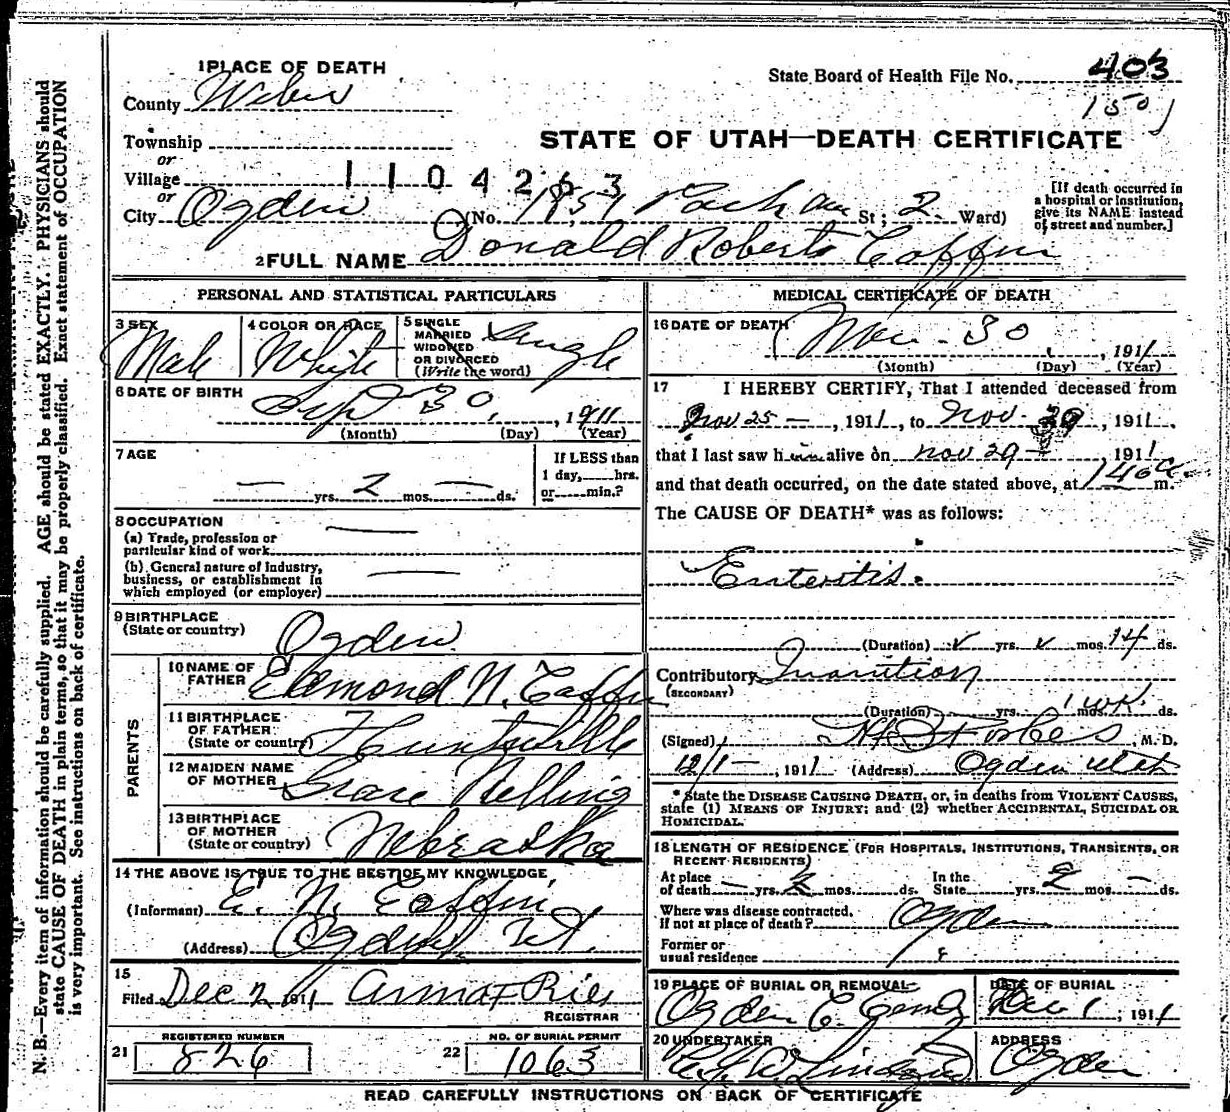 1 PLACE OF DEATH
State Board of Health File No. 403
County Weber
150
Township
STATE OF UTAH—DEATH CERTIFICATE
or
Village
1104263
or
City Ogden (No. St; 2 Ward)
[If death occurred in a hospital or institution, give its NAME instead of street and number.]
2 FULL NAME Donald Roberts Coffin
PERSONAL AND STATISTICAL PARTICULARS
3 SEX Male
4 COLOR OR RACE White
5 SINGLE MARRIED WIDOWED OR DIVORCED (Write the word) Single
6 DATE OF BIRTH Sept 30, 1911
(Month) (Day) (Year)
7 AGE — yrs. 2 mos. — ds.
If LESS than 1 day, hrs. or min.?
8 OCCUPATION
(a) Trade, profession or particular kind of work —
(b) General nature of industry, business, or establishment in which employed (or employer) —
9 BIRTHPLACE (State or country) Ogden
PARENTS
10 NAME OF FATHER Edmond N. Coffin
11 BIRTHPLACE OF FATHER (State or country) Huntsville
12 MAIDEN NAME OF MOTHER Grace
13 BIRTHPLACE OF MOTHER (State or country) Nebraska
14 THE ABOVE IS TRUE TO THE BEST OF MY KNOWLEDGE
(Informant) E. N. Coffin
(Address) Ogden, Ut.
15
Filed Dec 2 1911
REGISTRAR
REGISTERED NUMBER
21 826
NO. OF BURIAL PERMIT
22 1063
MEDICAL CERTIFICATE OF DEATH
16 DATE OF DEATH Nov. 30, 1911
(Month) (Day) (Year)
17 I HEREBY CERTIFY, That I attended deceased from
Nov 25 —, 1911, to Nov. 30, 1911,
that I last saw him alive on Nov 29 —, 1911
and that death occurred, on the date stated above, at 140 a m.
The CAUSE OF DEATH* was as follows:
Enteritis.
(Duration) yrs. mos. 14 ds.
Contributory Inanition
(SECONDARY)
(Duration) yrs. mos. 1 wk. ds.
(Signed) Forbes, M. D.
12/1 —, 1911 (Address) Ogden Utah
* State the DISEASE CAUSING DEATH, or, in deaths from VIOLENT CAUSES, state (1) MEANS OF INJURY; and (2) whether ACCIDENTAL, SUICIDAL OR HOMICIDAL.
18 LENGTH OF RESIDENCE (FOR HOSPITALS, INSTITUTIONS, TRANSIENTS, OR RECENT RESIDENTS)
At place of death — yrs. 2 mos. ds. In the State yrs. 2 mos. — ds.
Where was disease contracted, if not at place of death? Ogden
Former or usual residence
19 PLACE OF BURIAL OR REMOVAL Ogden C. Cemty
DATE OF BURIAL Dec 1, 1911
20 UNDERTAKER
ADDRESS Ogden
READ CAREFULLY INSTRUCTIONS ON BACK OF CERTIFICATE
N. B.—Every item of information should be carefully supplied. AGE should be stated EXACTLY. PHYSICIANS should
state CAUSE OF DEATH in plain terms, so that it may be properly classified. Exact statement of OCCUPATION
is very important. See instructions on back of certificate.